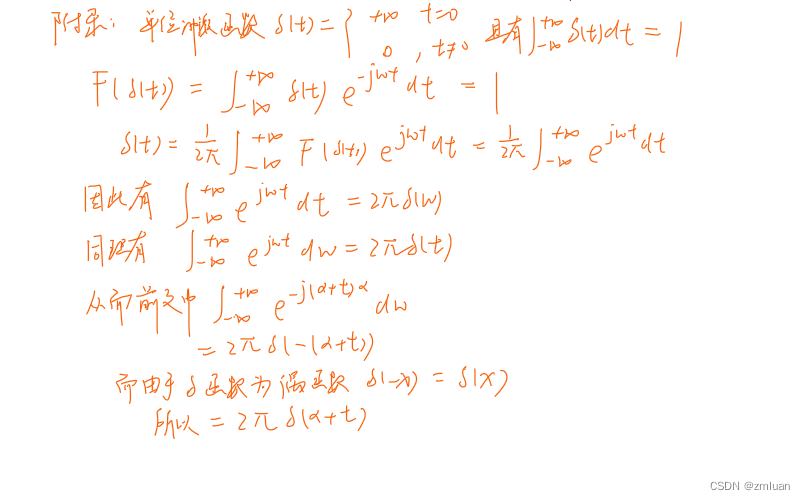 附录：单位冲激函数 δ(t) = { +∞ t=0
0 , t≠0 且有∫_{-∞}^{+∞} δ(t)dt = 1
F(δ(t)) = ∫_{-∞}^{+∞} δ(t) e^{-jwt} dt = 1
δ(t) = 1/2π ∫_{-∞}^{+∞} F(δ(t)) e^{jwt} dt = 1/2π ∫_{-∞}^{+∞} e^{jwt} dt
因此有 ∫_{-∞}^{+∞} e^{jwt} dt = 2πδ(w)
同理有 ∫_{-∞}^{+∞} e^{jwt} dw = 2πδ(t)
从而前文中 ∫_{-∞}^{+∞} e^{-j(α+t)α} dw
= 2π δ(-(α+t))
而由于 δ 函数为偶函数 δ(-x) = δ(x)
所以 = 2π δ(α+t)
CSDN @zmluan